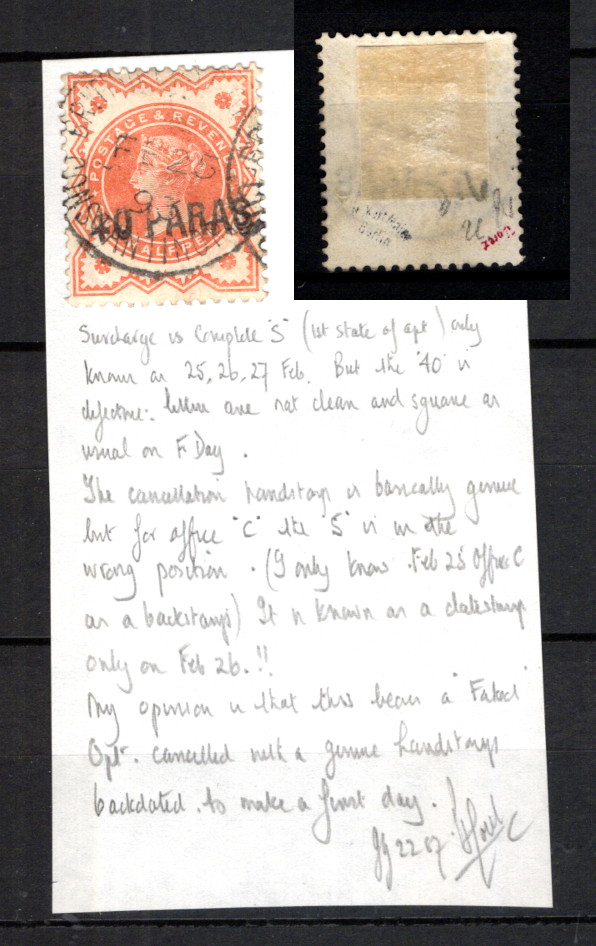 POSTAGE & REVEN
40 PARAS
HALFPE
Berlin
Surcharge is complete "S" (1st state of opt) only
known on 25, 26, 27 Feb. But the '40' is
defective: letters are not clean and square as
usual on F Day.
The cancellation handstamp is basically genuine
but for office "C" the "5" is in the
wrong position. (I only know Feb 25 Office C
as a backstamp) It is known as a datestamp
only on Feb 26.!!
My opinion is that this bears a "Faked"
Opt. cancelled with a genuine handstamp
backdated. to make a first day.
22 07